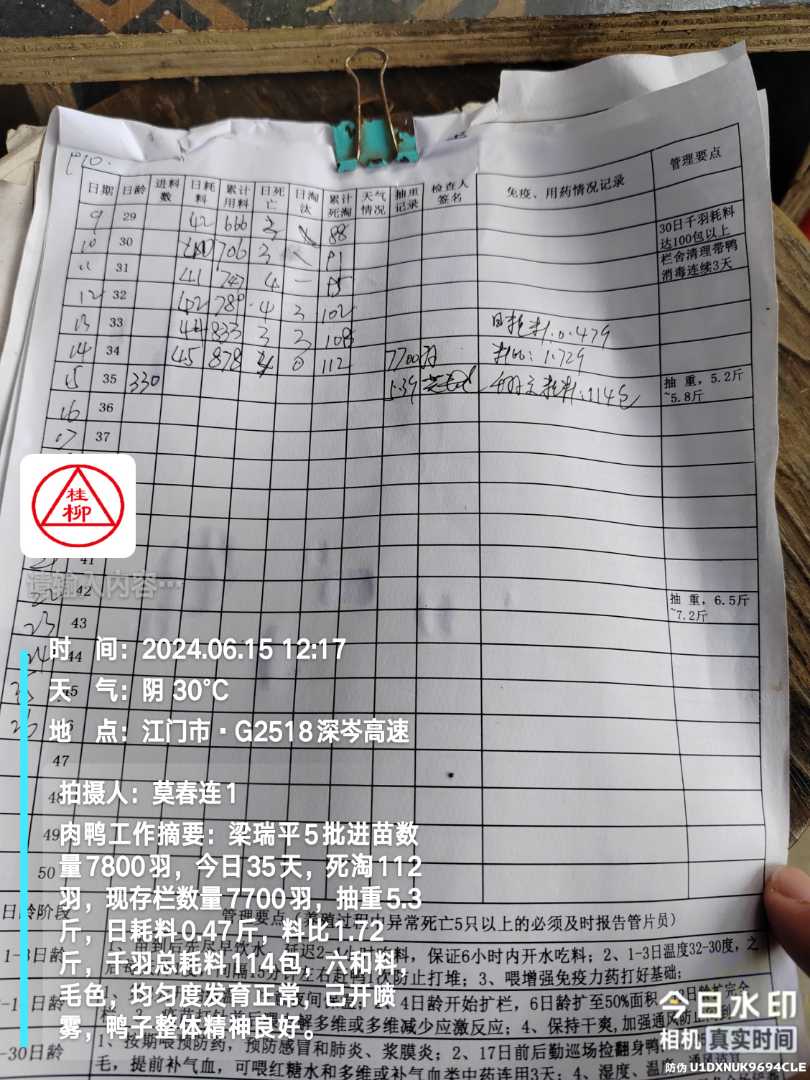 P10.
日期 日龄 进料数 日耗料 累计用料 日死亡 日淘汰 累计死淘 天气情况 抽重记录 检查人签名 免疫、用药情况记录 管理要点
9 29 42 666 3 88 30日千羽耗料达100包以上
10 30 706 3 91 栏舍清理带鸭消毒连续3天
11 31 41 747 4 一
12 32 42 789 4 3 102
13 33 44 833 3 3 108 日耗料:0.479
14 34 45 878 4 0 112 7700羽 料比:1.729
15 35 330 5.39 千羽总耗料:114包 抽 重，5.2斤~5.8斤
16 36
17 37
桂柳
请输入内容…
41
42 抽 重，6.5斤~7.2斤
23 43
24 44
47
49
50
时 间：2024.06.15 12:17
天 气：阴 30℃
地 点：江门市·G2518深岑高速
拍摄人：莫春连1
肉鸭工作摘要：梁瑞平5批进苗数
量7800羽，今日35天，死淘112
羽，现存栏数量7700羽，抽重5.3
斤，日耗料0.47斤，料比1.72
斤，千羽总耗料114包，六和料，
毛色，均匀度发育正常，已开喷
雾，鸭子整体精神良好。
日龄阶段
异常死亡5只以上的必须及时报告管片员）
1-3日龄 吃料，保证6小时内开水吃料；2、1-3日温度32-30度，之
防止打堆；3、喂增强免疫力药打好基础；
4日龄开始扩栏，6日龄扩至50%面积
解多维或多维减少应激反应；4、保持干爽,加强通风
-30日龄 1、按期喂预防药，预防感冒和肺炎、浆膜炎；2、17日前后勤巡场捡翻身鸭
毛，提前补气血，可喂红糖水和多维或补气血类中药连用3天；4、湿度、温度、通风
今日水印
相机 真实时间
防伪 U1DXNUK9694CLE